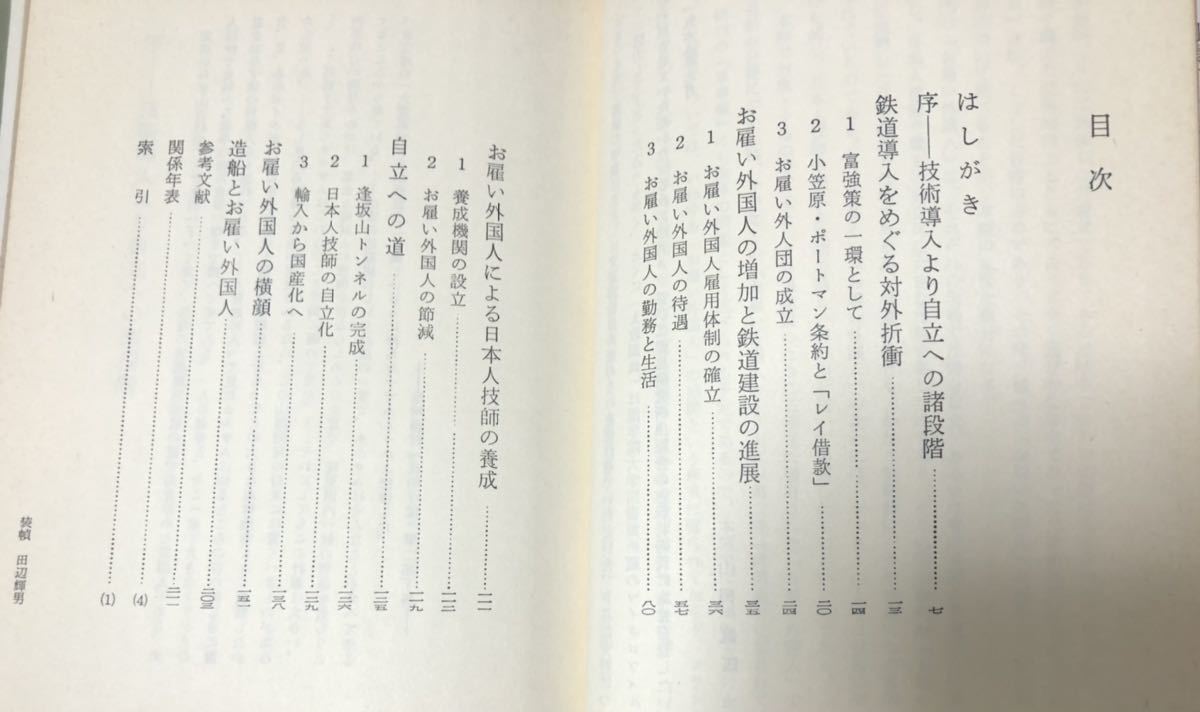 目次
はしがき
序――技術導入より自立への諸段階……七
鉄道導入をめぐる対外折衝……一三
1 富強策の一環として……一四
2 小笠原・ポートマン条約と「レイ借款」……二〇
3 お雇い外人団の成立……二四
お雇い外国人の増加と鉄道建設の進展……三五
1 お雇い外国人雇用体制の確立……三六
2 お雇い外国人の待遇……五七
3 お雇い外国人の勤務と生活……八〇
お雇い外国人による日本人技師の養成……一一一
1 養成機関の設立……一一二
2 お雇い外国人の節減……一一九
自立への道……一二五
1 逢坂山トンネルの完成……一二六
2 日本人技師の自立化……一二九
3 輸入から国産化へ……一三八
お雇い外国人の横顔……一五一
造船とお雇い外国人……二〇三
参考文献……二一一
関係年表……(4)
索引……(1)
装幀 田辺輝男